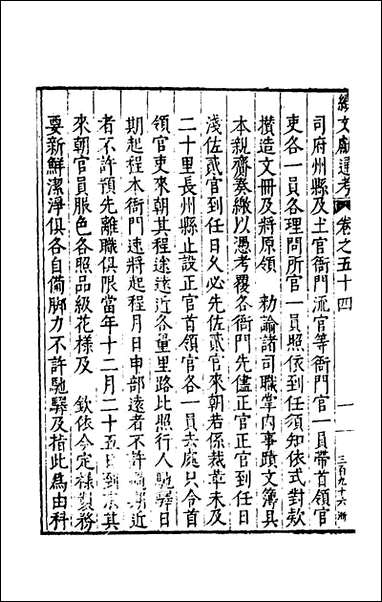 續文獻通考 卷之五十四
三百九十六
司府州縣及土官衙門流官等衙門官一員帶首領官
吏各一員各理問所官一員照依到任須知依式對款
攢造文冊及將原領 勑諭諸司職掌内事蹟文簿具
本親齎奏繳以憑考覆各衙門先儘正官正官到任日
淺佐貳官到任日久必先佐貳官來朝若係裁革未及
二十里長州縣止設正官首領官各一員去處只令首
領官吏來朝其程途遠近各量里路比照行人馳驛日
期起程本衙門速將起程月日申部遠者不許 近
者不許預先離職俱限當年十二月二十五日到 其
來朝官員服色各照品級花樣及 欽依今定 製務
要新鮮潔淨俱各自備脚力不許馳驛及指此爲由科